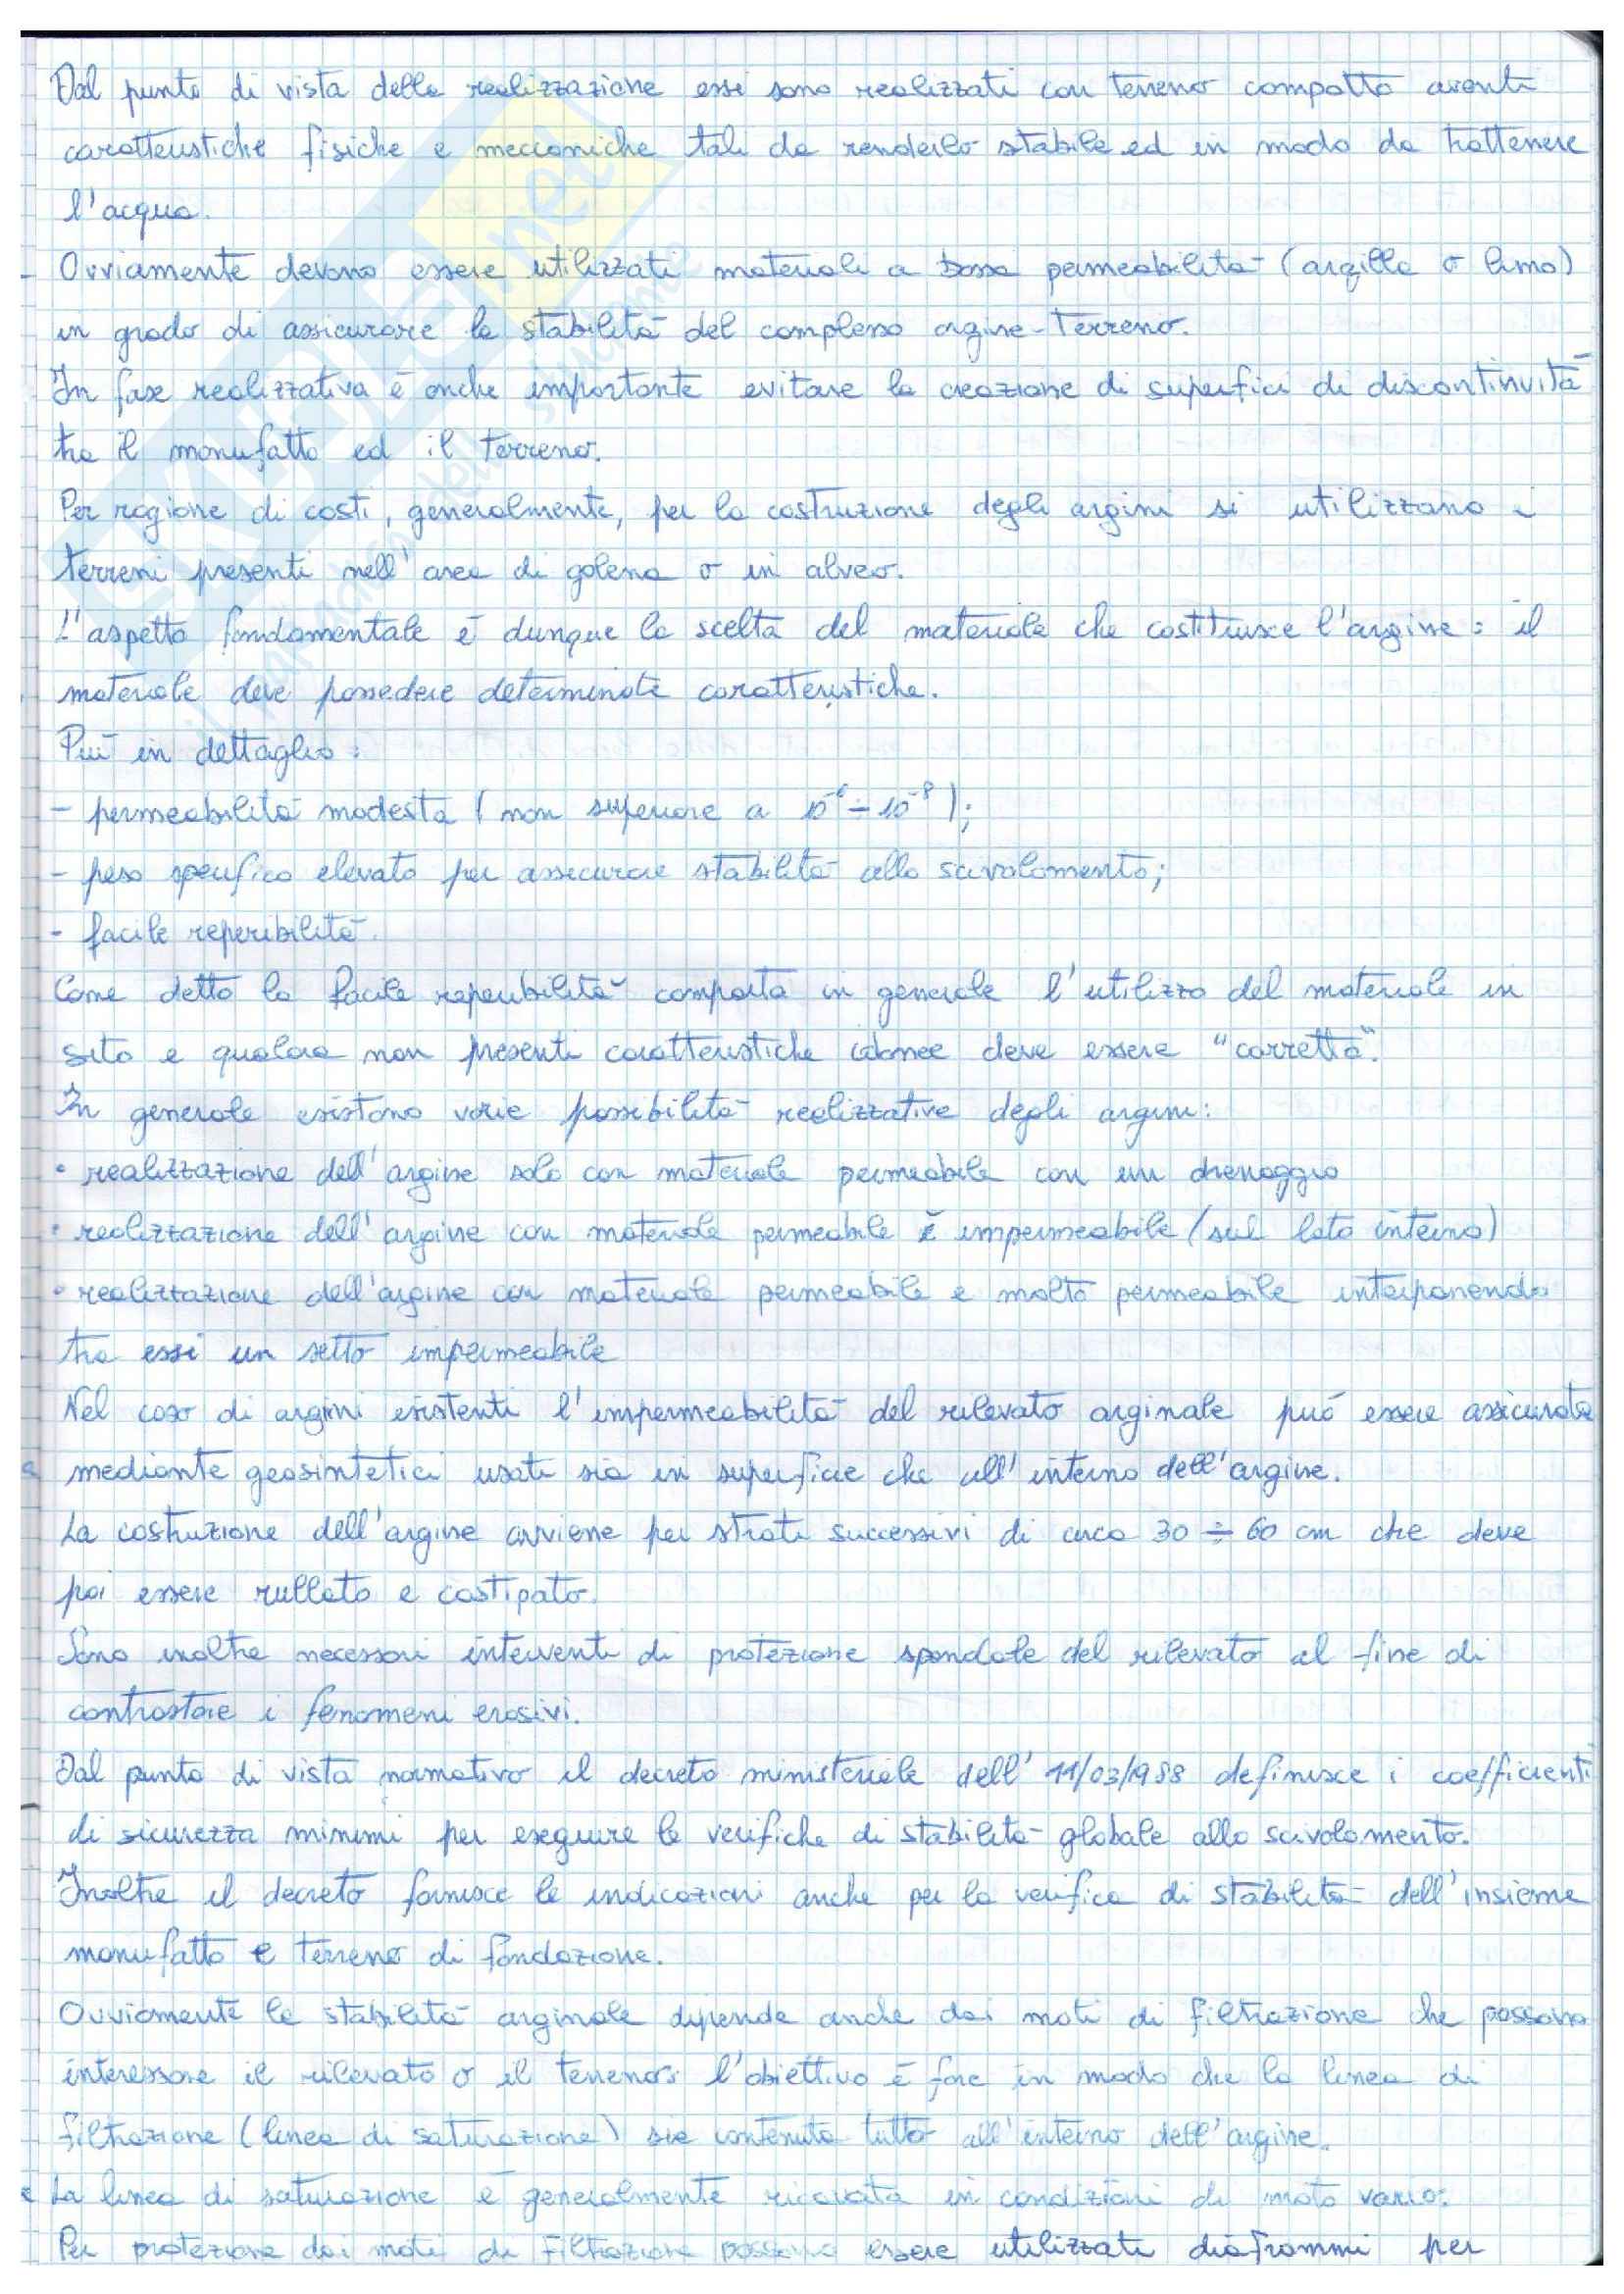 Dal punto di vista della realizzazione essi sono realizzati con terreno compatto aventi
caratteristiche fisiche e meccaniche tali da renderlo stabile ed in modo da trattenere
l'acqua.
- Ovviamente devono essere utilizzati materiali a bassa permeabilità (argilla o limo)
in grado di assicurare la stabilità del complesso argine-terreno.
In fase realizzativa è anche importante evitare la creazione di superfici di discontinuità
tra il manufatto ed il terreno.
Per ragione di costi, generalmente, per la costruzione degli argini si utilizzano i
terreni presenti nell'area di golena o in alveo.
L'aspetto fondamentale è dunque la scelta del materiale che costituisce l'argine: il
materiale deve possedere determinate caratteristiche.
Più in dettaglio:
- permeabilità modesta (non superiore a 10⁻⁶ ÷ 10⁻⁸);
- peso specifico elevato per assicurare stabilità allo scivolamento;
- facile reperibilità.
Come detto la facile reperibilità comporta in generale l'utilizzo del materiale in
sito e qualora non presenti caratteristiche idonee deve essere "corretto".
In generale esistono varie possibilità realizzative degli argini:
• realizzazione dell'argine solo con materiale permeabile con un drenaggio
• realizzazione dell'argine con materiale permeabile e impermeabile (sul lato interno)
• realizzazione dell'argine con materiale permeabile e molto permeabile interponendo
tra essi un setto impermeabile
Nel caso di argini esistenti l'impermeabilità del rilevato arginale può essere assicurata
mediante geosintetici usati sia in superficie che all'interno dell'argine.
La costruzione dell'argine avviene per strati successivi di circa 30 ÷ 60 cm che deve
poi essere rullato e costipato.
Sono inoltre necessari interventi di protezione spondale del rilevato al fine di
contrastare i fenomeni erosivi.
Dal punto di vista normativo il decreto ministeriale dell' 11/03/1988 definisce i coefficienti
di sicurezza minimi per eseguire le verifiche di stabilità globale allo scivolamento.
Inoltre il decreto fornisce le indicazioni anche per la verifica di stabilità dell'insieme
manufatto e terreno di fondazione.
Ovviamente la stabilità arginale dipende anche dai moti di filtrazione che possono
interessare il rilevato o il terreno: l'obiettivo è fare in modo che la linea di
filtrazione (linea di saturazione) sia contenuta tutto all'interno dell'argine.
La linea di saturazione è generalmente ricavata in condizioni di moto vario.
Per protezione dai moti di filtrazione possono essere utilizzati diaframmi per